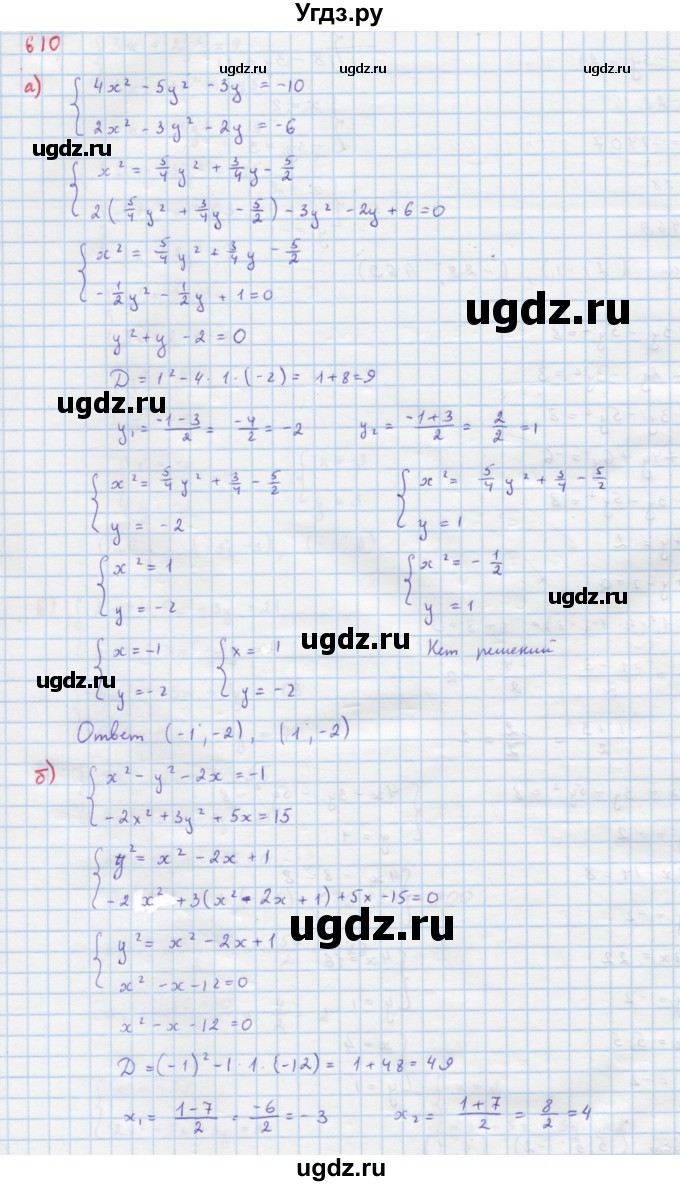 Угдз.ру
ugdz.ru ugdz.ru
610
а) { 4x² - 5y² - 3y = -10
2x² - 3y² - 2y = -6
ugdz.ru
{ x² = 5/4 y² + 3/4 y - 5/2
2(5/4 y² + 3/4 y - 5/2) - 3y² - 2y + 6 = 0
{ x² = 5/4 y² + 3/4 y - 5/2
-1/2 y² - 1/2 y + 1 = 0
ugdz.ru
y² + y - 2 = 0
D = 1² - 4 · 1 · (-2) = 1 + 8 = 9
ugdz.ru
y₁ = (-1-3)/2 = -4/2 = -2 y₂ = (-1+3)/2 = 2/2 = 1
{ x² = 5/4 y² + 3/4 - 5/2 { x² = 5/4 y² + 3/4 - 5/2
y = -2 y = 1
{ x² = 1 { x² = -1/2
y = -2 y = 1
ugdz.ru
{ x = -1 { x = 1 Нет решений
y = -2 y = -2
ugdz.ru
ugdz.ru
Ответ (-1; -2), (1; -2)
б) { x² - y² - 2x = -1
-2x² + 3y² + 5x = 15
{ y² = x² - 2x + 1
-2x² + 3(x² - 2x + 1) + 5x - 15 = 0
ugdz.ru
{ y² = x² - 2x + 1
x² - x - 12 = 0
x² - x - 12 = 0
D = (-1)² - 1 · 1 · (-12) = 1 + 48 = 49
x₁ = (1-7)/2 = -6/2 = -3 x₂ = (1+7)/2 = 8/2 = 4
ugdz.ru